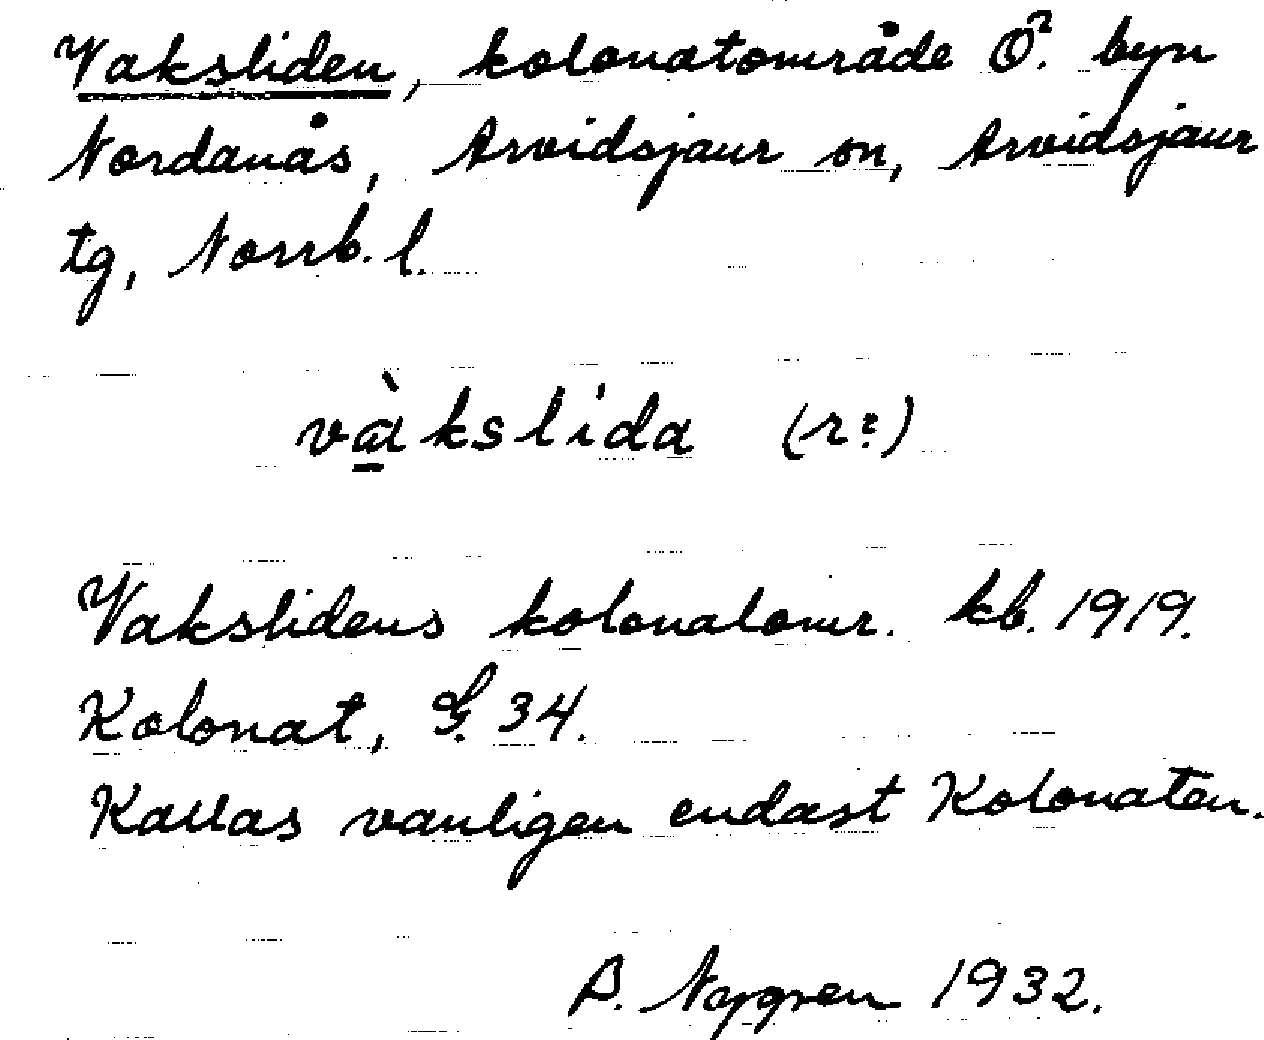 Vaksliden, kolonatområde Ö. byn
Nordanås, Arvidsjaur sn, Arvidsjaur
tg, Norrb. l.
và̱kslida (r?)
Vakslidens kolonatomr. kb. 1919.
Kolonat, G. 34.
Kallas vanligen endast Kolonaten.
A. Nygren 1932.